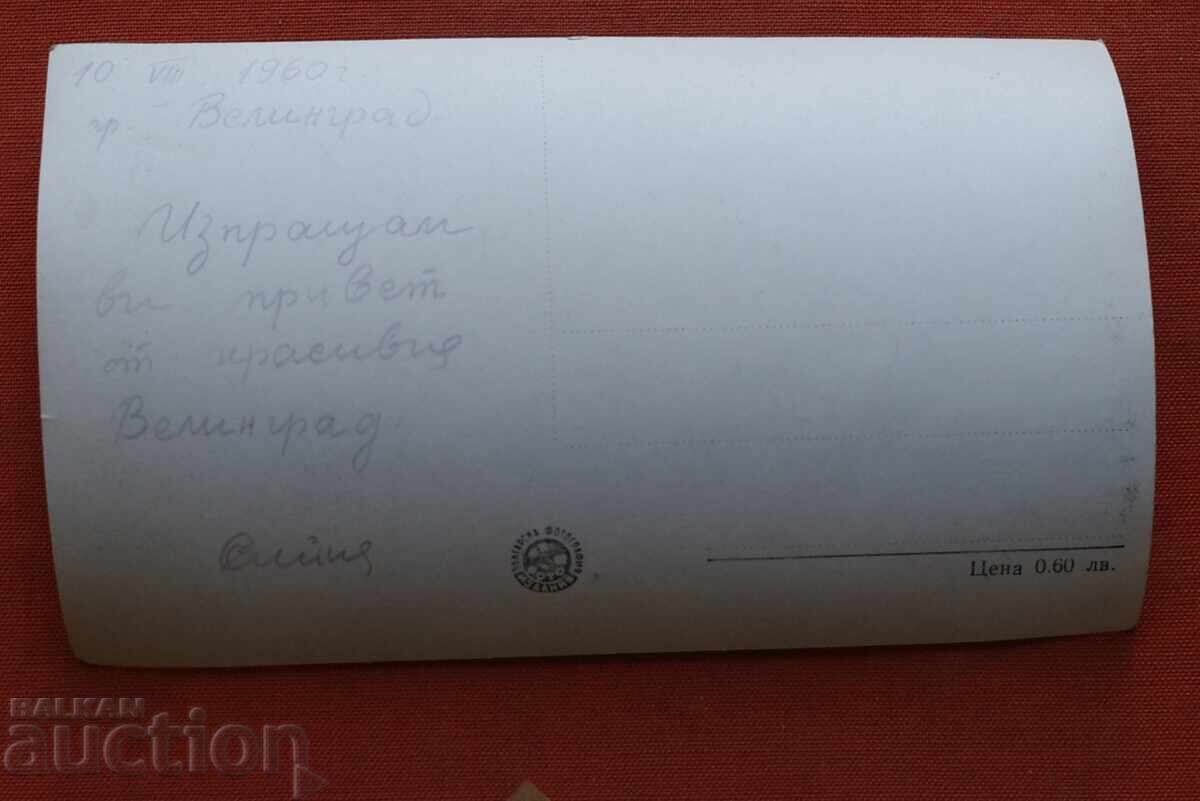 10 VIII 1960 г.
гр. Велинград.
Изпращам
ви привет
от красивия
Велинград.
БЪЛГАРСКА ФОТОГРАФИЯ
ИЗДАНИЕ
Цена 0.60 лв.
BALKAN
auction